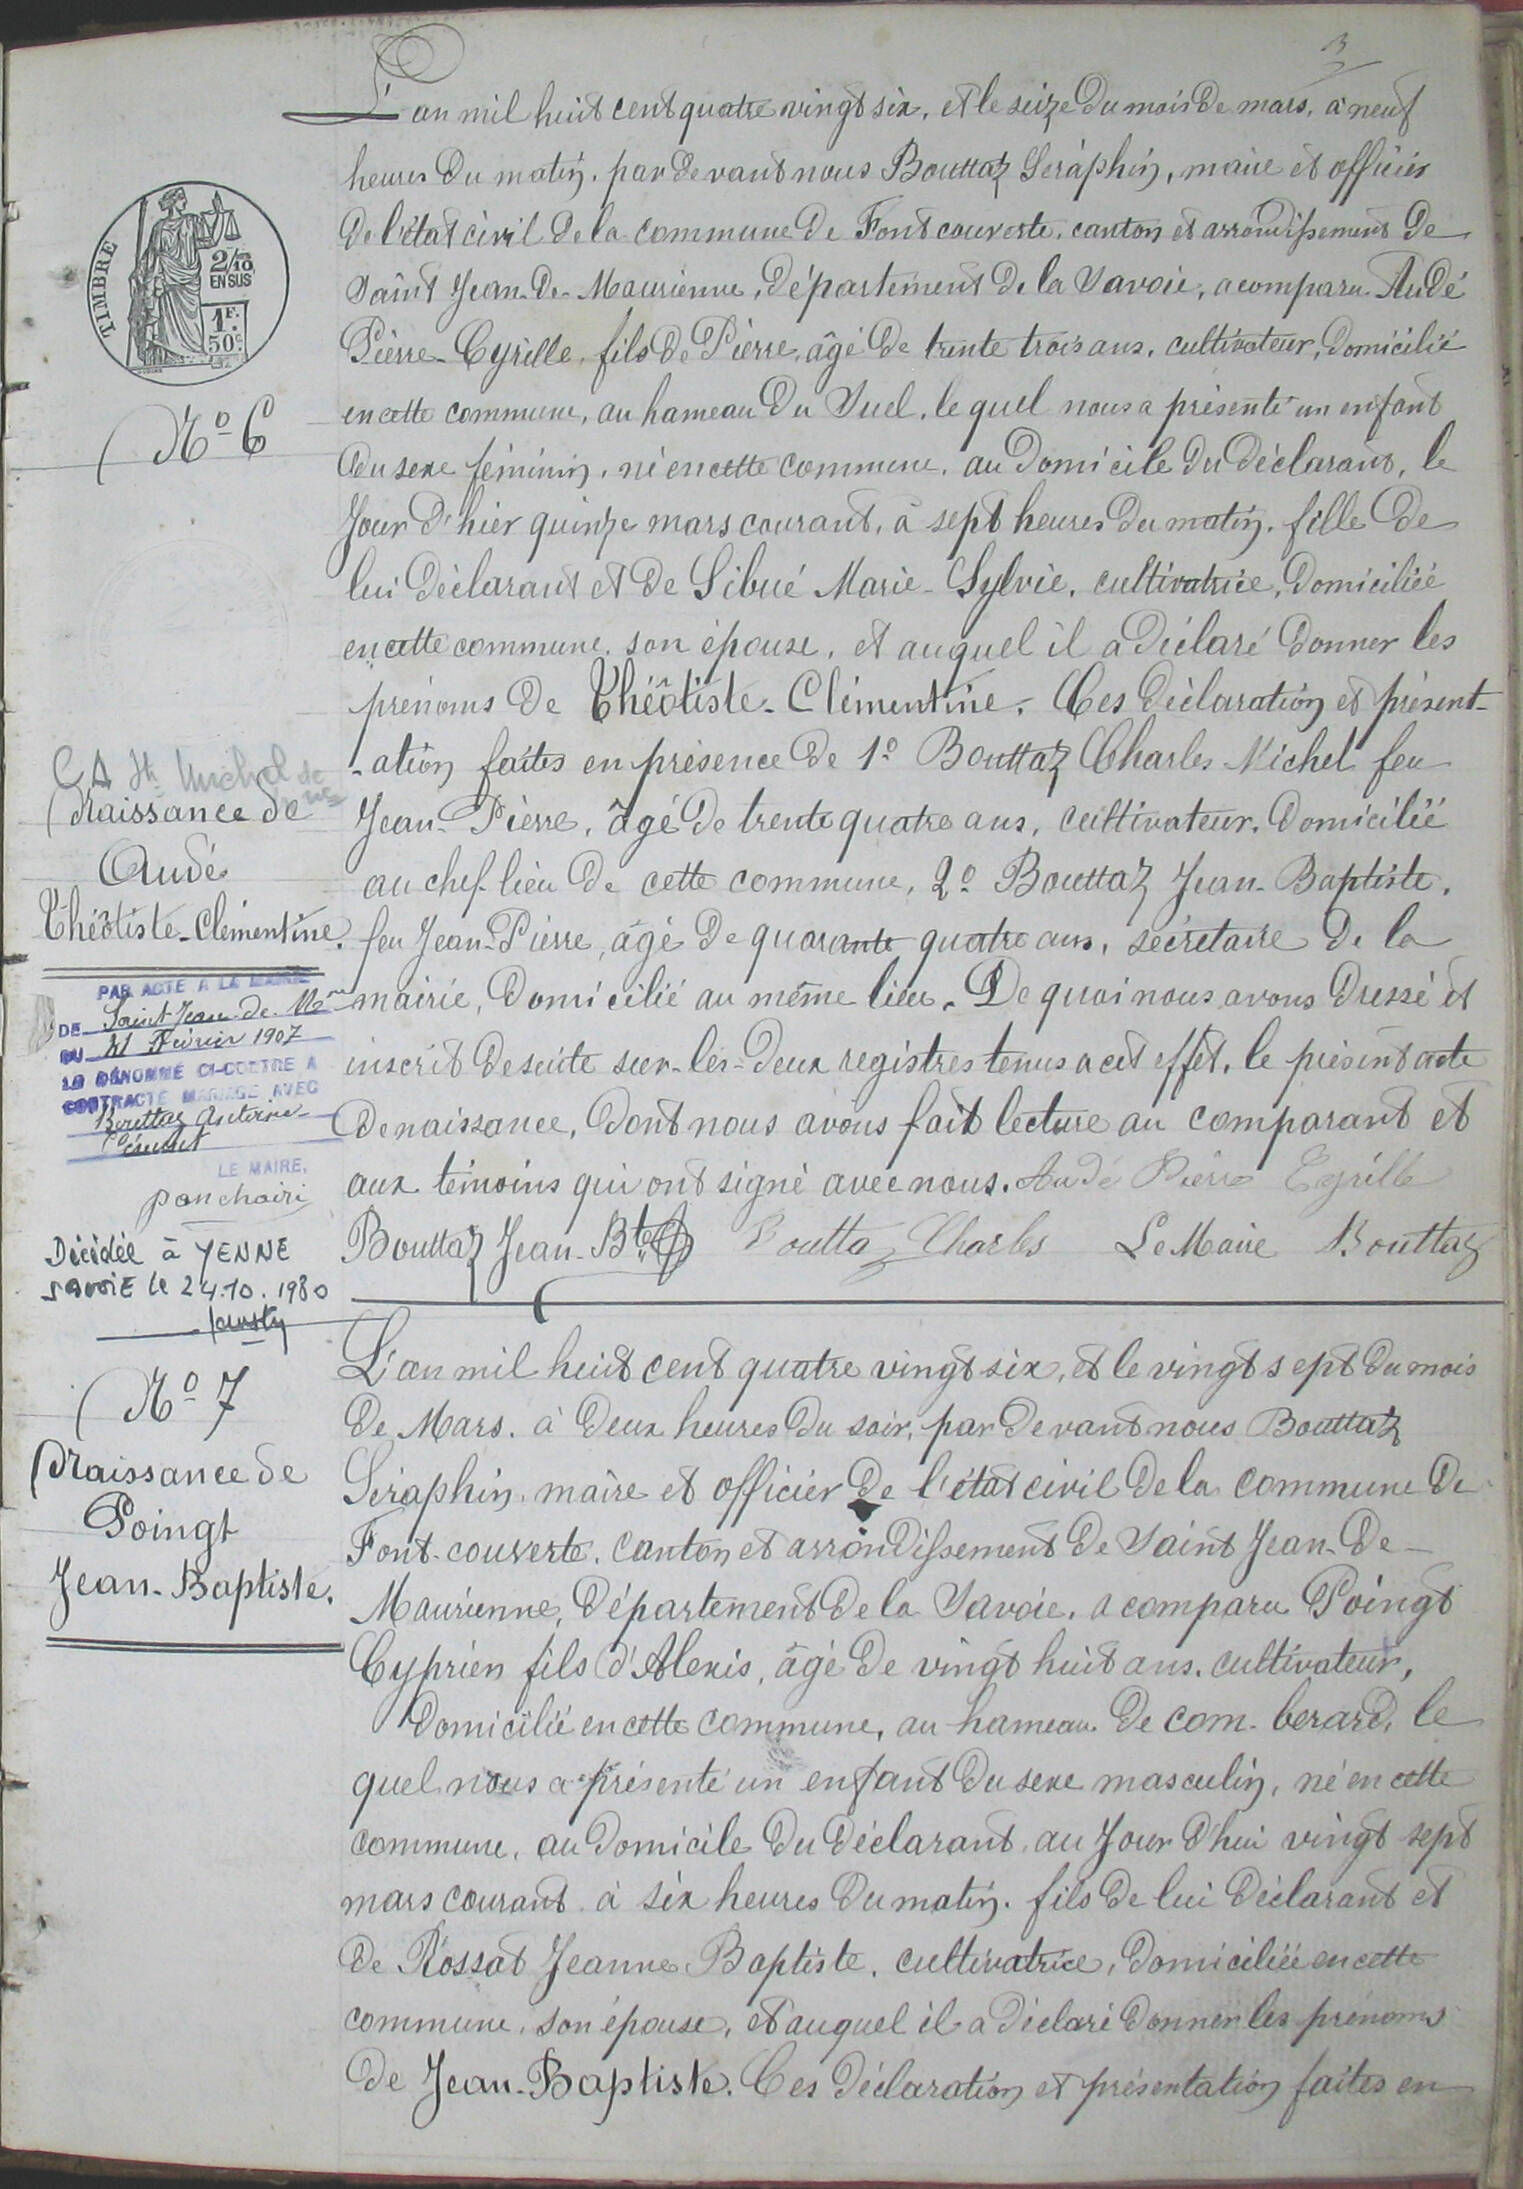 3
L'an mil huit cent quatre vingt six, et le seize du mois de mars, à neuf
heures du matin, par devant nous Bouttaz Séraphin, maire et officier
de l'état civil de la commune de Fontcouverte, canton et arrondissement de
Saint Jean-de-Maurienne, département de la Savoie, a comparu Audé
Pierre-Cyrille, fils de Pierre, âgé de trente trois ans, cultivateur, domicilié
en cette commune, au hameau du Suel, le quel nous a présenté un enfant
du sexe féminin, né en cette commune, au domicile du déclarant, le
jour d'hier quinze mars courant, à sept heures du matin, fille de
lui déclarant et de Sibué Marie-Sylvie, cultivatrice, domiciliée
en cette commune, son épouse, et auquel il a déclaré donner les
prénoms de Théotiste-Clémentine. Ces déclaration et présent-
-ation faites en présence de 1º Bouttaz Charles Michel feu
Jean-Pierre, âgé de trente quatre ans, cultivateur, domicilié
au chef-lieu de cette commune, 2º Bouttaz Jean-Baptiste,
feu Jean-Pierre, âgé de quarante quatre ans, secrétaire de la
mairie, domicilié au même lieu. De quoi nous avons dressé et
inscrit de suite sur-les-deux registres tenus a cet effet, le présent acte
de naissance, dont nous avons fait lecture au comparant et
aux témoins qui ont signé avec nous. Audé Pierre Cyrille
Bouttaz Jean-Bte Bouttaz Charles Le Maire Bouttaz
TIMBRE
2/10
EN SUS
1F.
50c.
Nº 6
CA St Michel de
Naissance de
Audé
Théotiste-Clémentine.
PAR ACTE A LA MAIRIE
DE Saint Jean-de-Mne
DU 21 Février 1907
LE DÉNOMMÉ CI-CONTRE A
CONTRACTÉ MARIAGE AVEC
Bouttaz Antoine-
LE MAIRE,
Décidée à YENNE
SAVOIE le 24.10.1980
Nº 7
Naissance de
Poingt
Jean-Baptiste.
L'an mil huit cent quatre vingt six, et le vingt sept du mois
de Mars, à deux heures du soir, par devant nous Bouttaz
Séraphin, maire et officier de l'état civil de la commune de
Font-couverte, canton et arrondissement de Saint Jean-de-
Maurienne, département de la Savoie, a comparu Poingt
Cyprien fils d'Alexis, âgé de vingt huit ans, cultivateur,
domicilié en cette commune, au hameau de com-berard, le
quel nous a présenté un enfant du sexe masculin, né en cette
commune, au domicile du déclarant, au jour d'hui vingt sept
mars courant à six heures du matin, fils de lui déclarant et
de Rossat Jeanne Baptiste, cultivatrice, domiciliée en cette
commune, son épouse, et auquel il a déclaré donner les prénoms
de Jean-Baptiste. Ces déclaration et présentation faites en